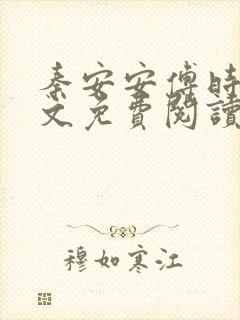 秦安安傅時
文免費閱讀
穆如寒江